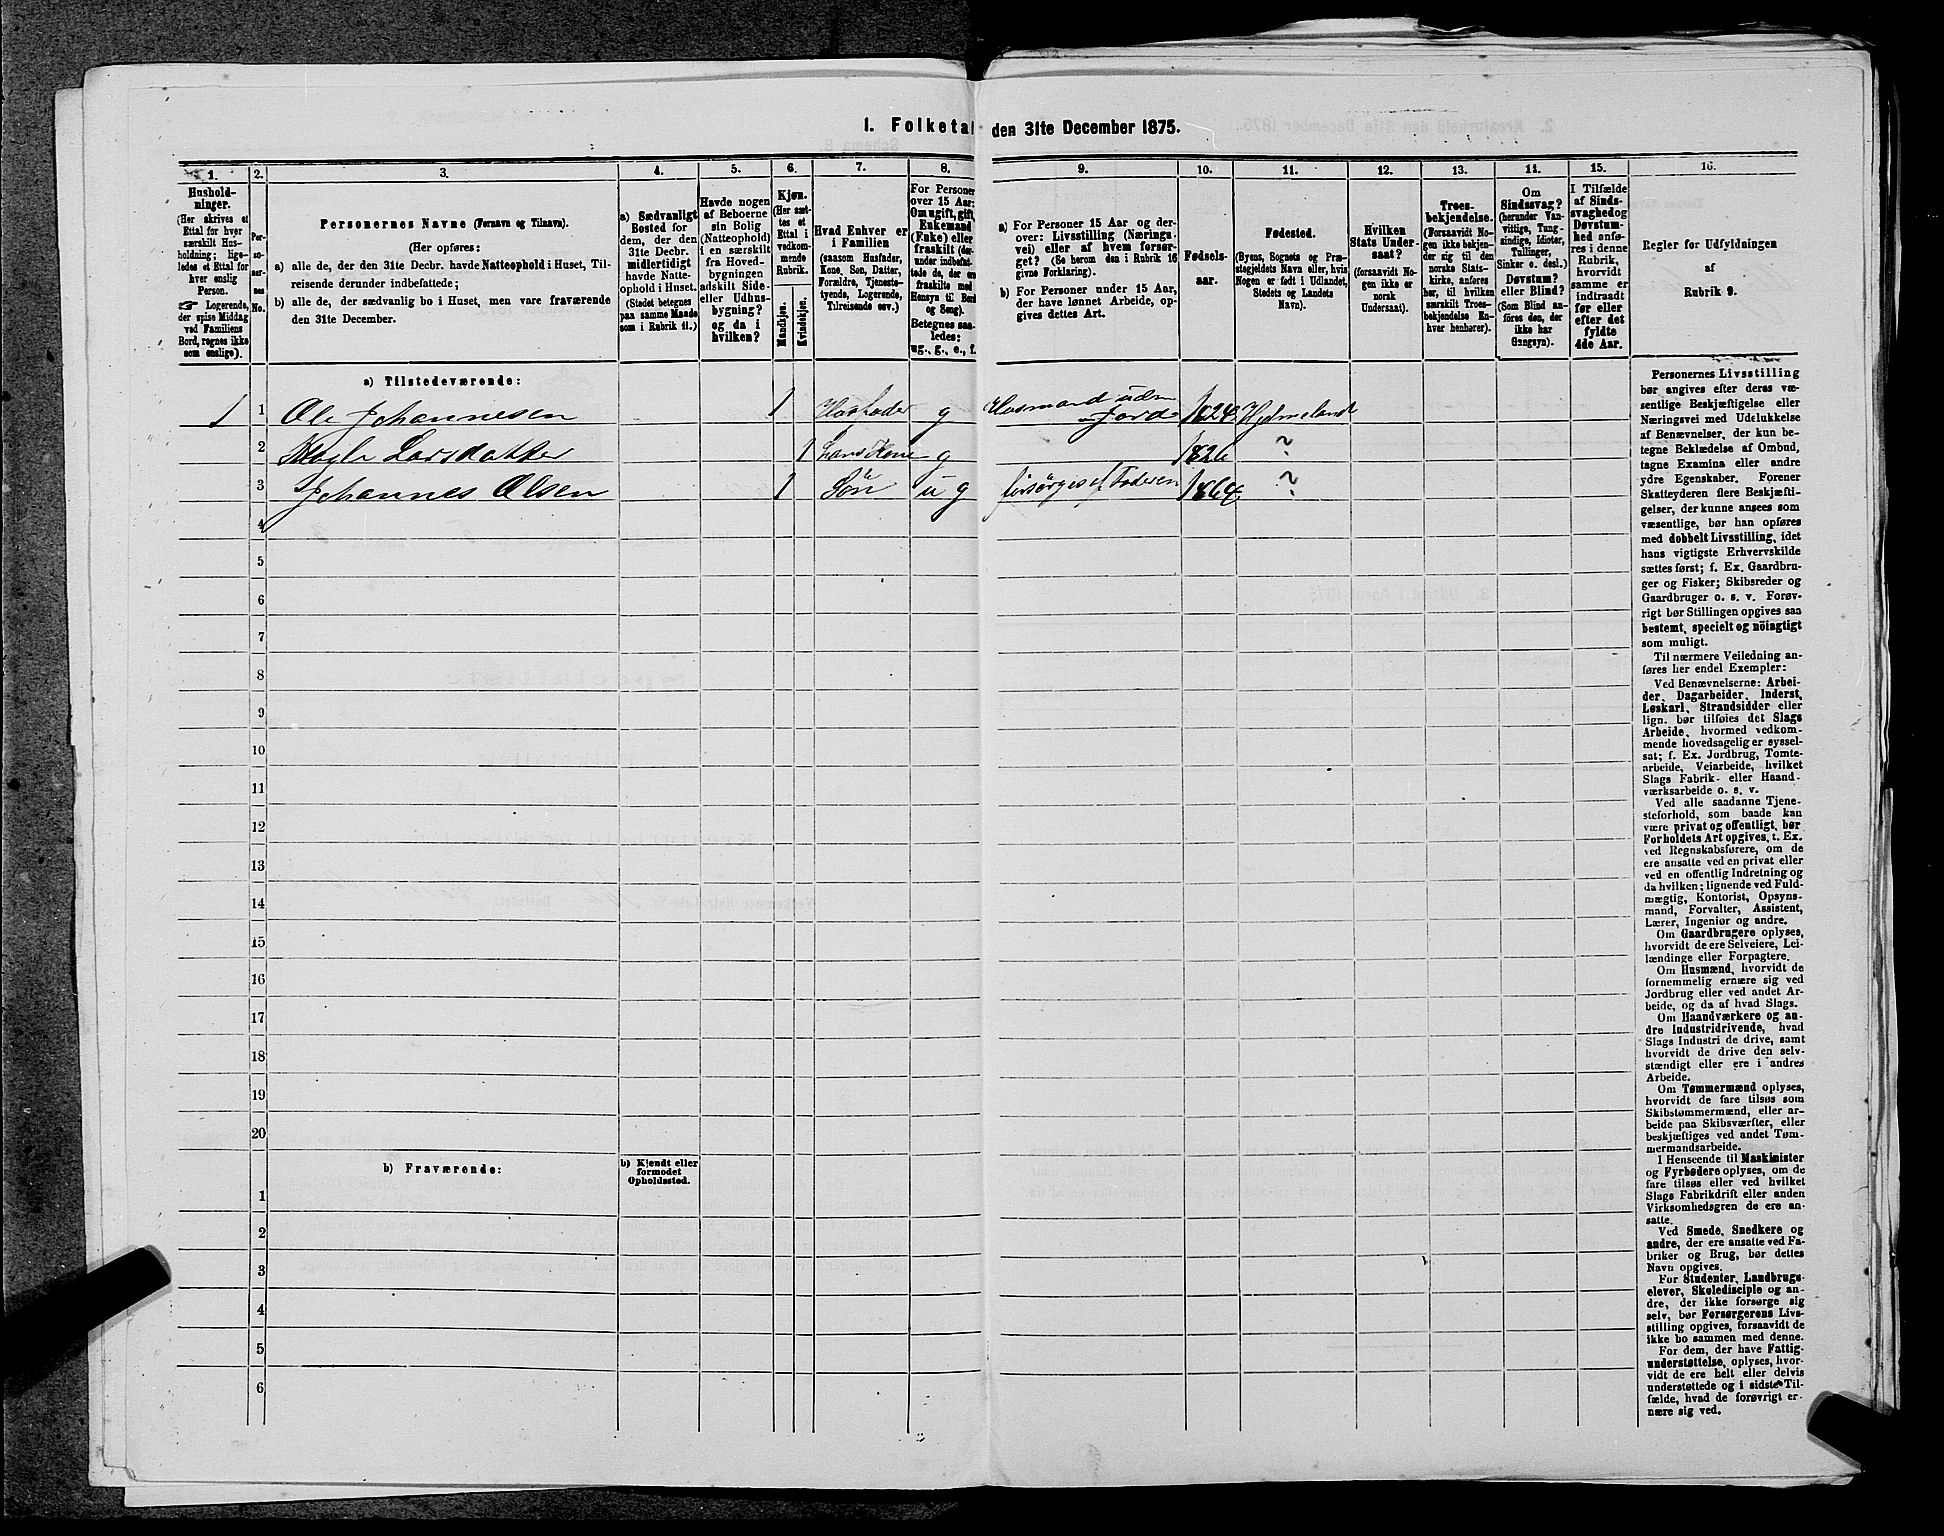 1. Folketal den 31te December 1875.
1.
Hushold-
ninger.
(Her skrives et
Ettal for hver
særskilt Hus-
holdning; lige-
ledes et Ettal for
hver enslig
Person.
☞ Logerende,
der spise Middag
ved Familiens
Bord, regnes ikke
som enslige).
2.
Per-
so-
ner-
nes
No.
3.
Personernes Navne (Fornavn og Tilnavn).
(Her opføres:
a) alle de, der den 31te Decbr. havde Natteophold i Huset, Til-
reisende derunder indbefattede;
b) alle de, der sædvanlig bo i Huset, men vare fraværende
den 31te December.
4.
a) Sædvanligt
Bosted for
dem, der den
31te Decbr.
midlertidigt
havde Natte-
ophold i Huset.
(Stedet betegnes
paa samme Maade
som i Rubrik 11.)
5.
Havde nogen
af Beboerne
sin Bolig
(Natteophold)
i en særskilt
fra Hoved-
bygningen
adskilt Side-
eller Udhus-
bygning?
og da i
hvilken?
6.
Kjøn.
(Her sæt-
tes et
Ettal i
vedkom-
mende
Rubrik.
Mandkjøn.
Kvindekjøn.
7.
Hvad Enhver er
i Familien
(saasom Husfader,
Kone, Søn, Datter,
Forældre, Tjeneste-
tyende, Logerende,
Tilreisende osv.)
8.
For Personer
over 15 Aar:
Om ugift, gift,
Enkemand
(Enke) eller
fraskilt (der-
under indbefat-
tede de, der ere
fraskilte med
Hensyn til Bord
og Seng).
Betegnes saa-
ledes:
ug., g., e., f.
9.
a) For Personer 15 Aar og der-
over: Livsstilling (Nærings-
vei) eller af hvem forsør-
get? (Se herom den i Rubrik 16
givne Forklaring).
b) For Personer under 15 Aar,
der have lønnet Arbeide, op-
gives dettes Art.
10.
Fødsels-
aar.
11.
Fødested.
(Byens, Sognets og Præ-
stegjeldets Navn eller, hvis
Nogen er født i Udlandet,
Stedets og Landets
Navn).
12.
Hvilken
Stats Under-
saat?
(forsaavidt No-
gen ikke er
norsk
Undersaat).
13.
Troes-
bekjendelse.
(Forsaavidt No-
gen ikke bekjen-
der sig til den
norske Stats-
kirke, anføres
her, til hvilken
særskilt Troes-
bekjendelse En-
hver henhører).
14.
Om
Sindssvag?
(herunder Van-
vittige, Tung-
sindige, Idioter,
Tullinger,
Sinker o. desl.)
Døvstum?
eller Blind?
(Som Blind an-
føres den, der
ikke har
Gangsyn).
15.
I Tilfælde
af Sinds-
svaghed og
Døvstum-
hed anfø-
res i denne
Rubrik,
hvorvidt
samme er
indtraadt
før eller
efter det
fyldte
4de Aar.
16.
Regler for Udfyldningen
af
Rubrik 9.
a) Tilstedeværende:
1 1 Ole Johannesen 1 Husfader g Husmand uden Jord 1824 Hjelmeland
2 Larsdatter 1 hans Kone g 1826 ?
3 Johannes Olsen 1 Søn ug forsørges af Faderen 1864 ?
4
5
6
7
8
9
10
11
12
13
14
15
16
17
18
19
20
b) Fraværende:
b) Kjendt eller
formodet
Opholdssted.
1
2
3
4
5
6
Personernes Livsstilling
bør angives efter deres væ-
sentlige Beskjæftigelse eller
Næringsvei med Udelukkelse
af Benævnelser, der kun be-
tegne Beklædelse af Ombud,
tagne Examina eller andre
ydre Egenskaber. Forener
Skatteyderen flere Beskjæfti-
gelser, der kunne ansees som
væsentlige, bør han opføres
med dobbelt Livsstilling, idet
hans vigtigste Erhvervskilde
sættes først; f. Ex. Gaardbru-
ger og Fisker; Skibsreder og
Gaardbruger o. s. v. Forøv-
rigt bør Stillingen opgives saa
bestemt, specielt og nöiagtigt
som muligt.
Til nærmere Veiledning an-
føres her endel Exempler:
Ved Benævnelserne: Arbei-
der, Dagarbeider, Inderst,
Løskarl, Strandsidder eller
lign. bør tilføies det Slags
Arbeide, hvormed vedkom-
mende hovedsagelig er syssel-
sat; f. Ex. Jordbrug, Tomte-
arbeide, Veiarbeide, hvilket
Slags Fabrik- eller Haand-
værksarbeide o. s. v.
Ved alle saadanne Tjene-
steforhold, som baade kan
være privat og offentligt, bør
Forholdets Art opgives, t. Ex.
ved Regnskabsførere, om de
ere ansatte ved en privat eller
ved en offentlig Indretning og
da hvilken; lignende ved Fuld-
mægtig, Kontorist, Opsyns-
mand, Forvalter, Assistent,
Lærer, Ingeniør og andre.
Om Gaardbrugere oplyses,
hvorvidt de ere Selveiere, Lei-
lændinge eller Forpagtere.
Om Husmænd, hvorvidt de
fornemmelig ernære sig ved
Jordbrug eller ved andet Ar-
beide, og da af hvad Slags.
Om Haandværkere og an-
dre Industridrivende, hvad
Slags Industri de drive, samt
hvorvidt de drive den selv-
stændigt eller ere i andres
Arbeide.
Om Tømmermænd oplyses,
hvorvidt de fare tilsøs som
Skibstømmermænd, eller ar-
beide paa Skibsværfter, eller
beskjæftiges ved andet Tøm-
mermandsarbeide.
I Henseende til Maskinister
og Fyrbødere oplyses, om de
fare tilsøs eller ved hvilket
Slags Fabrikdrift eller anden
Virksomhedsgren de ere an-
satte.
Ved Smede, Snedkere og
andre, der ere ansatte ved Fa-
briker og Brug, bør dettes
Navn opgives.
For Studenter, Landbrugs-
elever, Skoledisciple og an-
dre, der ikke forsørge sig
selv, bør Forsørgerens Livs-
stilling opgives, forsaavidt de
ikke bo sammen med denne.
For dem, der have Fattig-
understøttelse, oplyses, hvor-
vidt de ere helt eller delvis
understøttede og i sidste Til-
fælde, hvad de forøvrigt er-
nære sig ved.